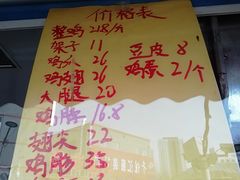 价格表
整鸡 218/分
架子 11
鸡爪 26
鸡翅 26
大腿 20
鸡胗 16.8
翅尖 22
鸡胗 33
豆皮 8
鸡蛋 2/个